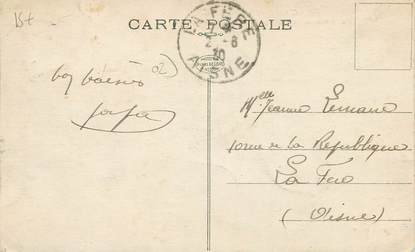 15t
CARTE POSTALE
LA FÈRE
2 - 8
20
AISNE
02
bons baisers
Mlle Jeanne Lemaire
rue de la République
La Fère
(Aisne)